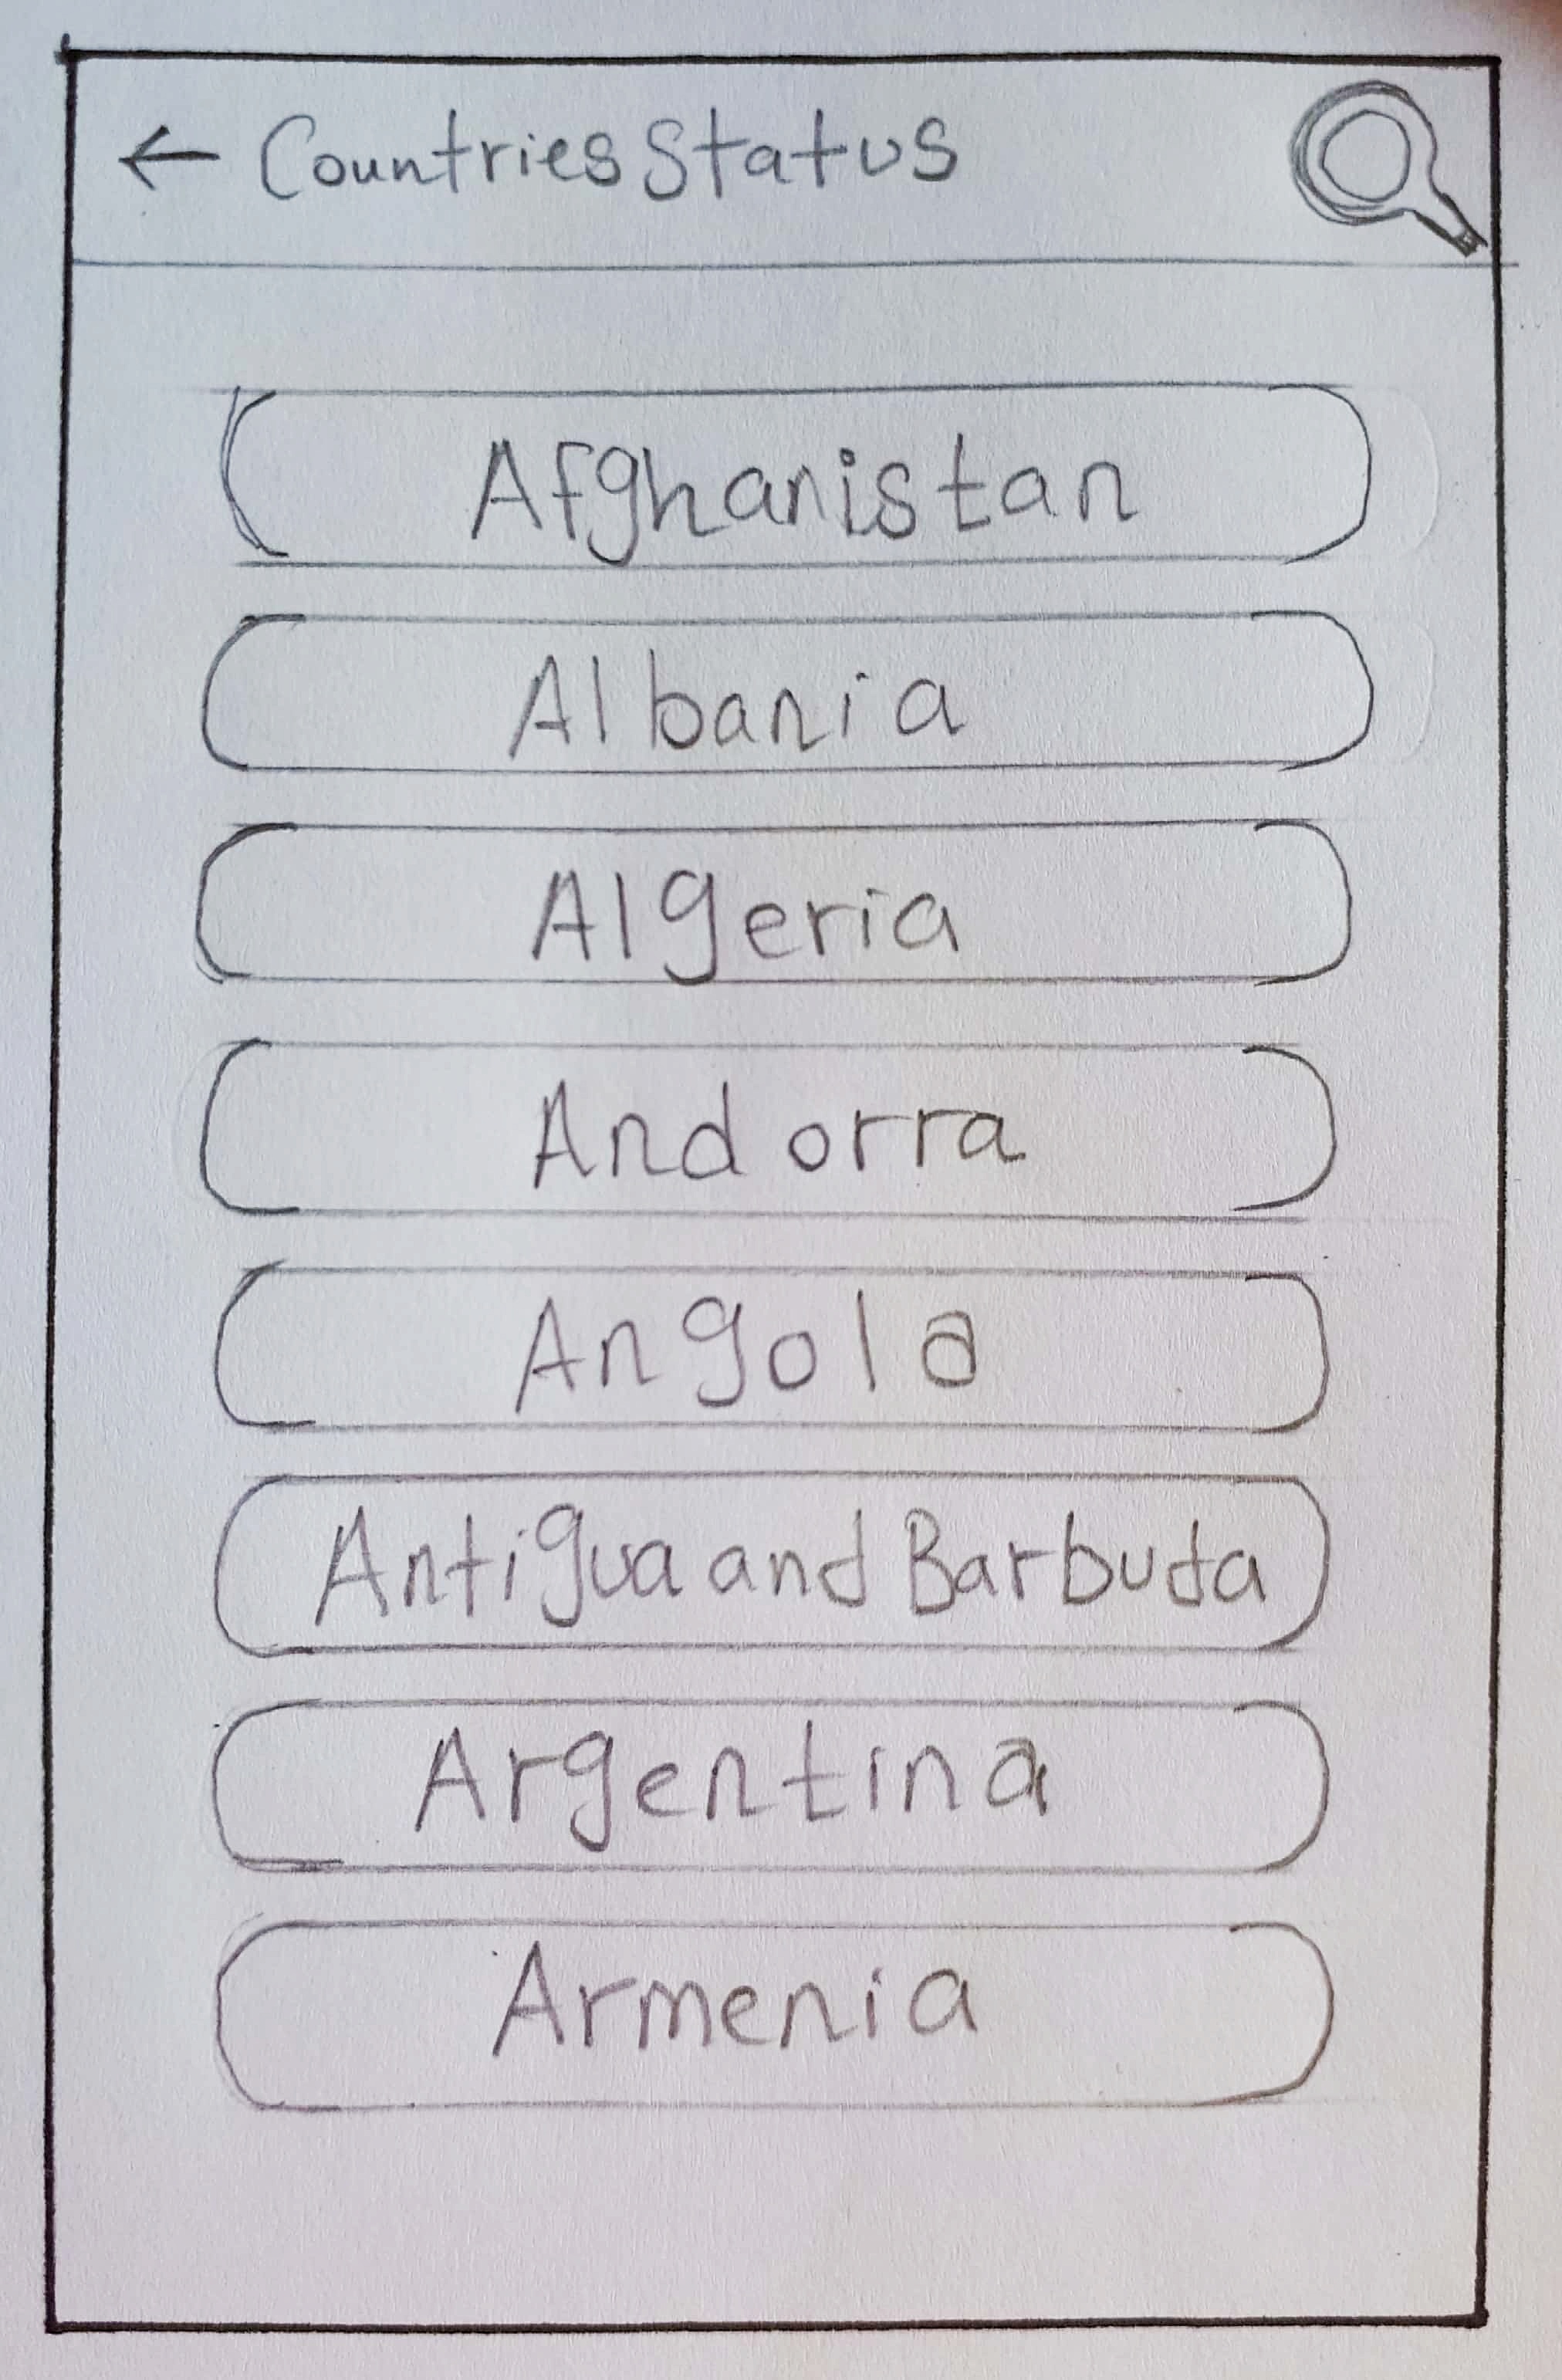 ← Countries Status
Afghanistan
Albania
Algeria
Andorra
Angola
Antigua and Barbuda
Argentina
Armenia